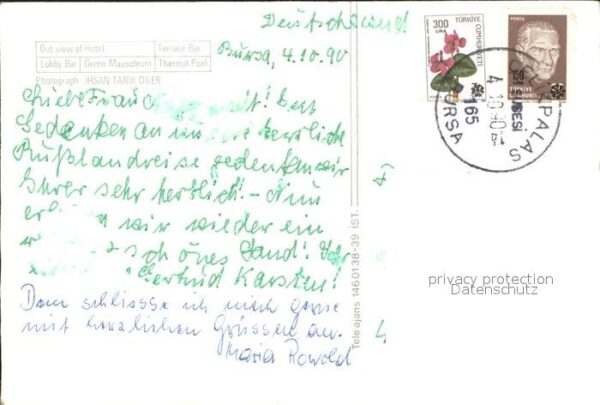 Deutschland!
Bursa, 4.10.90
Out view of Hotel Terrace Bar
Lobby Bar Green Mausoleum Thermyl Pool
Photograph : IHSAN TARIK DILER
Liebe Frau
Gedenken an unsere herrliche
Rußlandreise gedenken wir
Ihrer sehr herzlich! - Nun
wir wieder ein
schönes Land! Ihre
Gertrud Karsten!
Dem schliesse ich mich gerne
mit herzlichen Grüssen an.
Maria Rowold
Teleajans 1460138-39 İST.
300
LİRA
TÜRKİYE
CUMHURİYETİ
POSTA
TÜRKİYE
PALAS
4.10.90
165
BURSA
privacy protection
Datenschutz